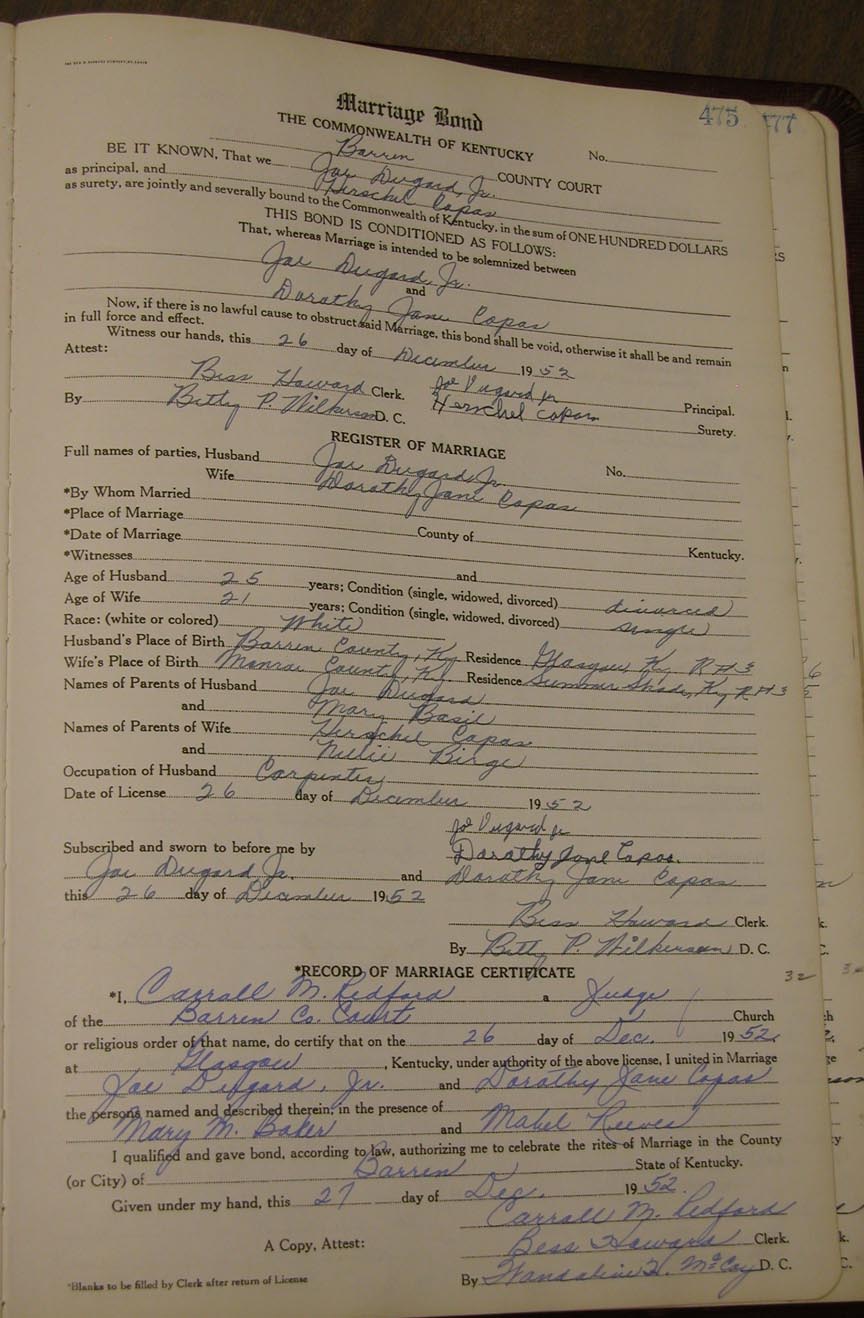 475 477
Marriage Bond
THE COMMONWEALTH OF KENTUCKY
No.
Barren COUNTY COURT
BE IT KNOWN, That we Joe Dugard, Jr.
as principal, and Herschel Copas
as surety, are jointly and severally bound to the Commonwealth of Kentucky, in the sum of ONE HUNDRED DOLLARS
THIS BOND IS CONDITIONED AS FOLLOWS:
That, whereas Marriage is intended to be solemnized between
Joe Dugard, Jr.
and
Dorathy Jane Copas
Now, if there is no lawful cause to obstruct said Marriage, this bond shall be void, otherwise it shall be and remain
in full force and effect.
Witness our hands, this 26 day of December 1952
Attest:
Bess Howard Clerk. Joe Dugard Jr Principal.
By Betty P. Wilkerson D. C. Herschel Copas Surety.
REGISTER OF MARRIAGE
Full names of parties, Husband Joe Dugard, Jr. No.
Wife Dorathy Jane Copas
*By Whom Married
*Place of Marriage
*Date of Marriage County of Kentucky.
*Witnesses and
Age of Husband 25 years; Condition (single, widowed, divorced) divorced
Age of Wife 21 years; Condition (single, widowed, divorced) single
Race: (white or colored) White
Husband's Place of Birth Barren County, Ky. Residence Glasgow, Ky. R # 3
Wife's Place of Birth Monroe County, Ky. Residence Summer Shade, Ky, R # 3
Names of Parents of Husband Joe Dugard
and Mary Basil
Names of Parents of Wife Herschel Copas
and Nellie Birge
Occupation of Husband Carpenter
Date of License 26 day of December 1952
Joe Dugard Jr
Subscribed and sworn to before me by Dorathy Jane Copas.
Joe Dugard Jr. and Dorathy Jane Copas
this 26 day of December 1952
Bess Howard Clerk.
By Betty P. Wilkerson D. C.
*RECORD OF MARRIAGE CERTIFICATE 32
*I, Carroll M. Redford a Judge
of the Barren Co. Court Church
or religious order of that name, do certify that on the 26 day of Dec. 1952.
at Glasgow, Kentucky, under authority of the above license, I united in Marriage
Joe Dugard, Jr. and Dorothy Jane Copas
the persons named and described therein; in the presence of
Mary M. Baker and Mabel Reeves
I qualified and gave bond, according to law, authorizing me to celebrate the rites of Marriage in the County
(or City) of Barren State of Kentucky.
Given under my hand, this 27 day of Dec. 1952.
Carroll M. Redford
A Copy, Attest: Bess Howard Clerk.
By McCoy D. C.
*Blanks to be filled by Clerk after return of License